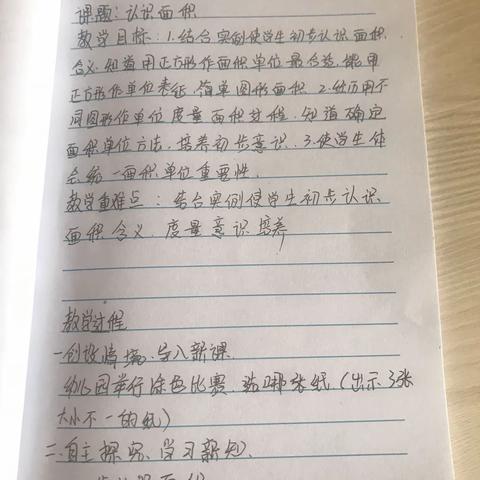 课题:认识面积
教学目标:1.结合实例使学生初步认识面积
含义.知道用正方形作面积单位最合适,能用
正方形作单位表征,简单图形面积 2.经历用不
同图形作单位度量面积过程.知道确定
面积单位方法.培养初步意识.3.使学生体
会统一面积单位重要性.
教学重难点:结合实例使学生初步认识
面积含义.度量意识培养
教学过程
一创设情境、导入新课
幼儿园举行涂色比赛.选哪张纸(出示3张
大小不一的纸)
二.自主探究、学习新知.